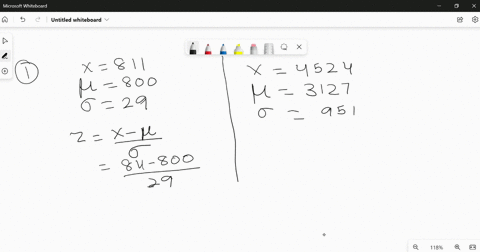 Microsoft Whiteboard
Untitled whiteboard
1
x = 811
μ = 800
σ = 29
z = x - μ / σ
= 811 - 800 / 29
x = 4524
μ = 3127
σ = 951
118%